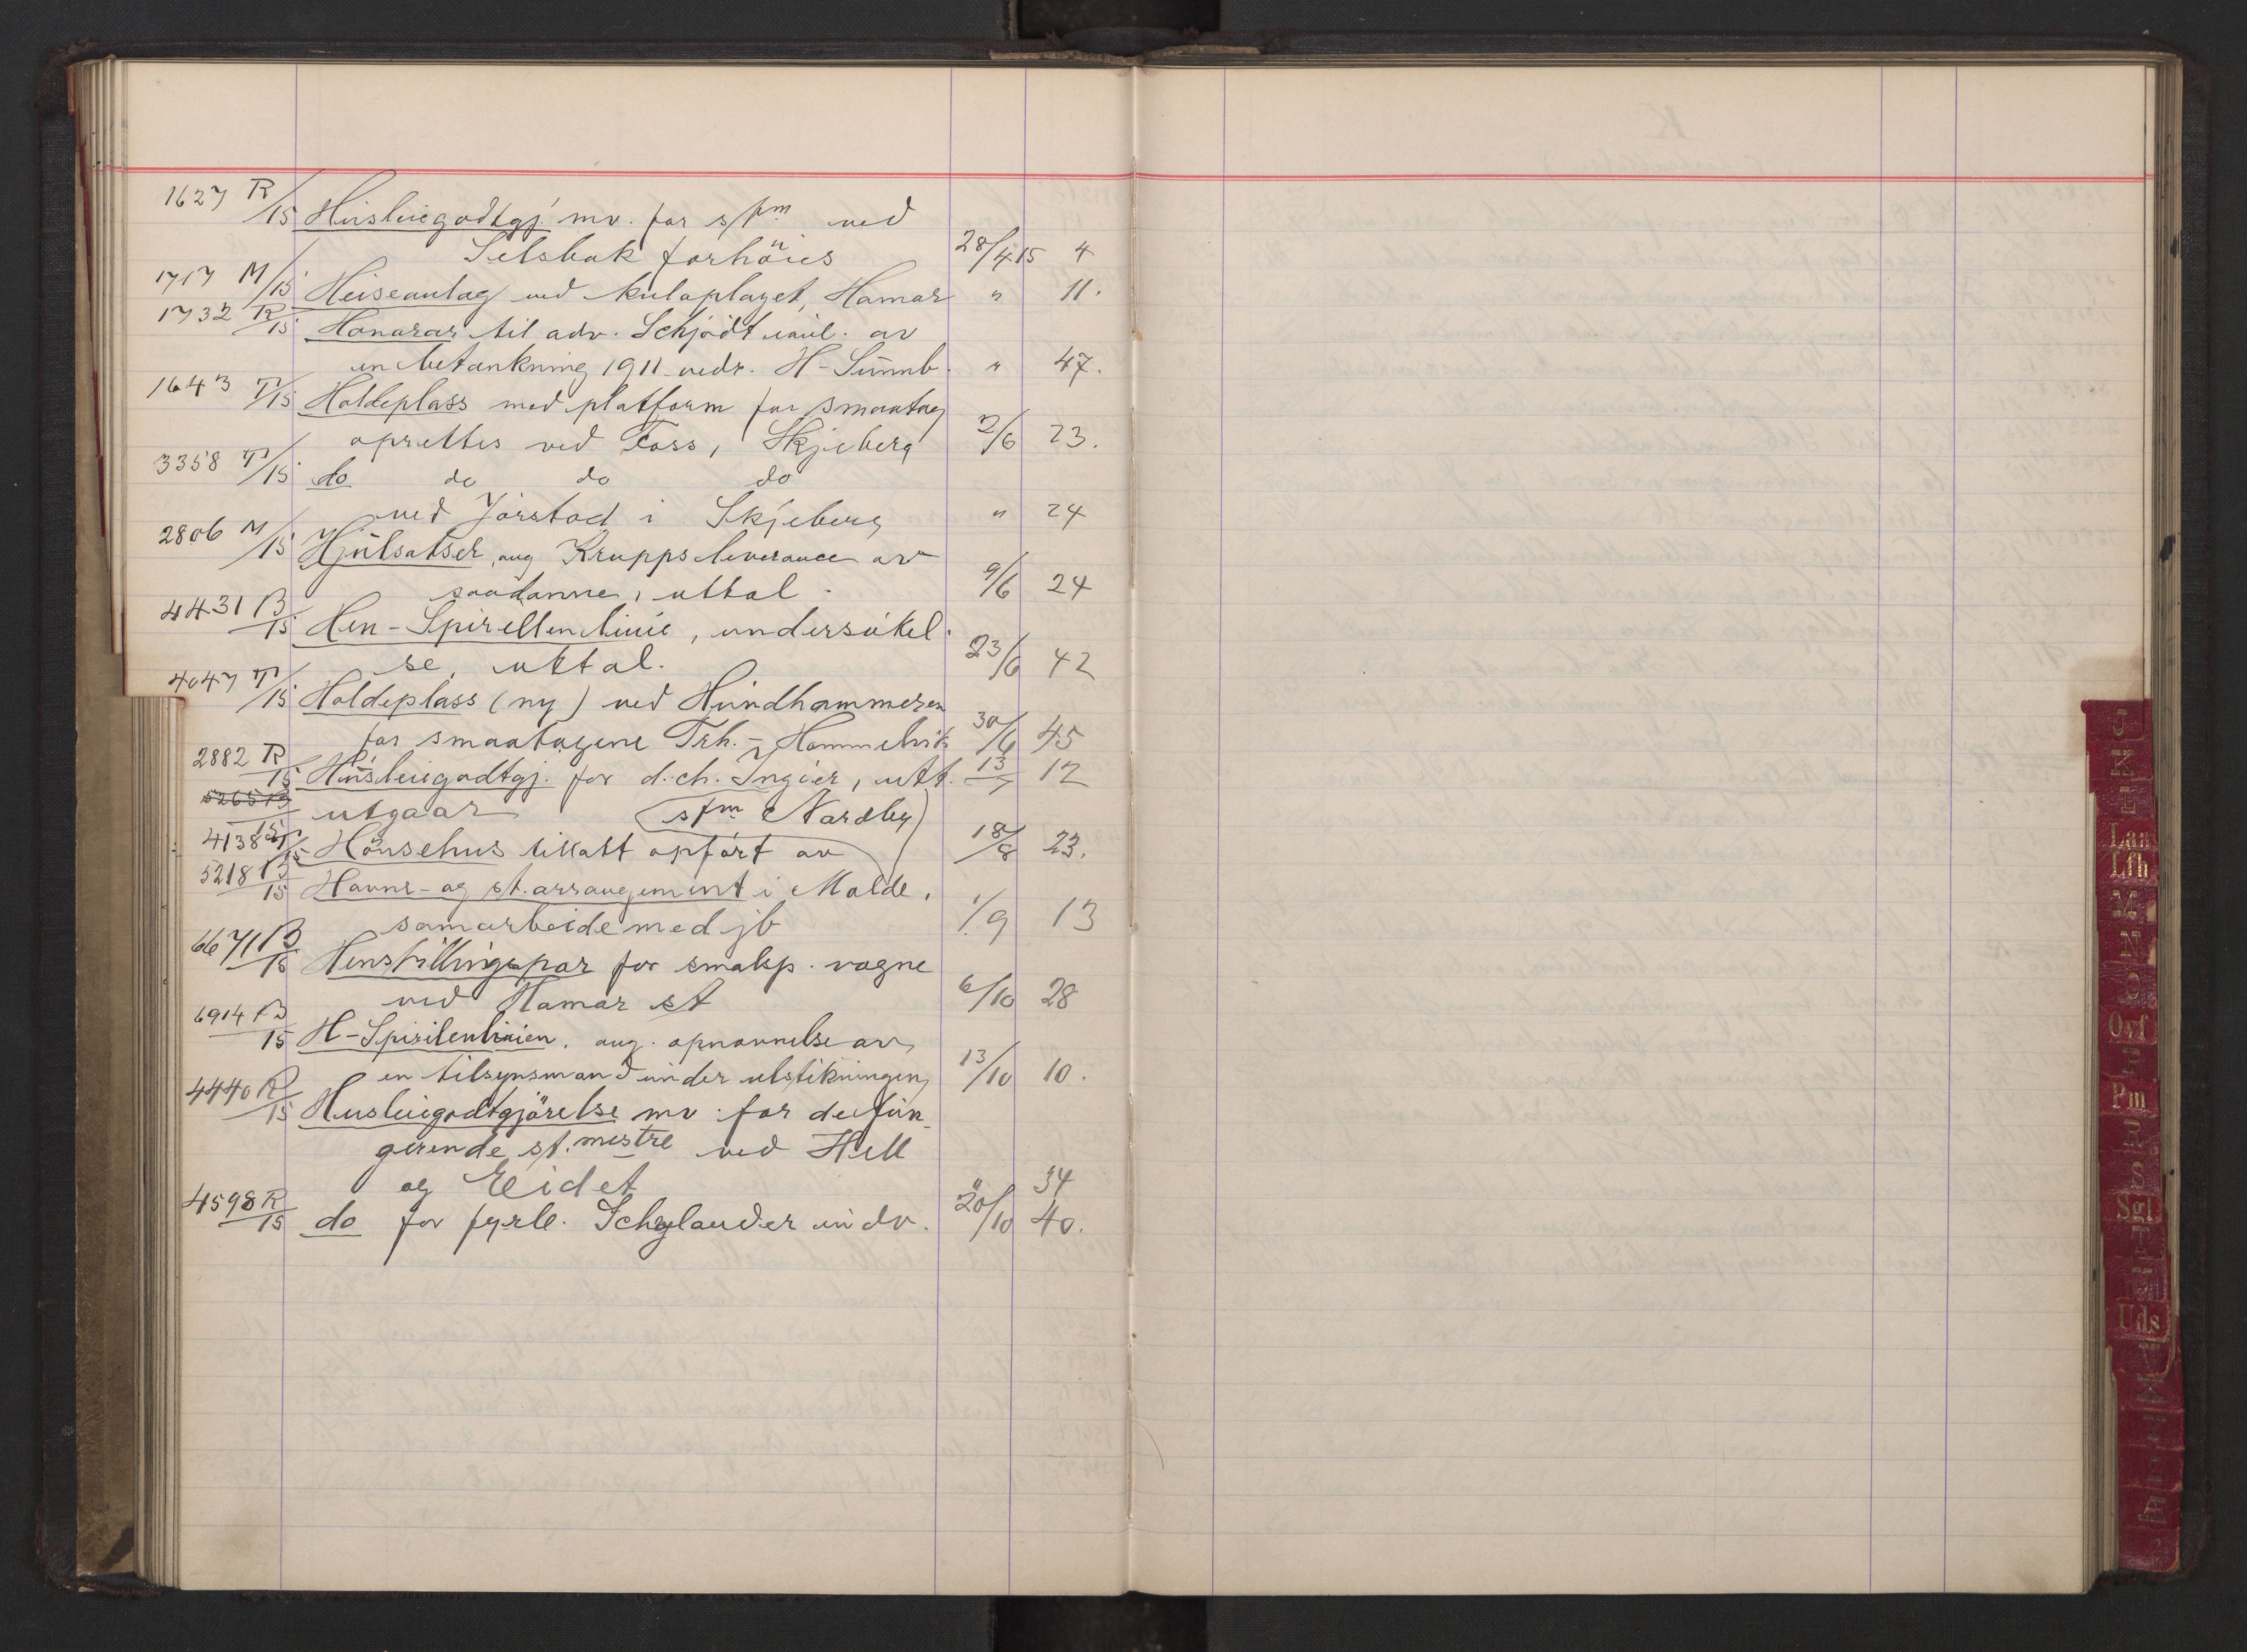 1627 R/15 Husleiegodtgj. mv. for s/fm ved
Selsbak forhöies 28/4 15 4
1717 M/15 Heiseanlag ved kulaplaget, Hamar " 11.
1732 R/15 Honorar til adv. Schjödt av
en betænkning 1911 vedr. H-Sunnb. " 47.
1643 T/15 Holdeplass med platform for smaatog
oprettes ved Foss, Skjeberg 2/6 23.
3358 T/15 do do do do
ved Jörstad i Skjeberg " 24
2806 M/15 Hjulsatser, ang Krupps leverance av
saadanne, uttal. 9/6 24
4431 B/15 Hen-Spirellenlinie, undersökel-
se, uttal. 23/6 42
4047 T/15 Holdeplass (ny) ved Hundhammeren
for smaatogene Trh.-Hommelvik 30/6 45
2882 R/15 Husleiegodtgj. for d.ch. Ingier, utt. 13/7 12
5265 B/15 utgaar (sfm Nordby)
4138 T/15 Hönsehus tillatt opfört av 18/8 23.
5218 B/15 Havne- og st. arrangement i Molde,
samarbeide med jb 1/9 13
6671 B/15 Henstillingspor for smalsp. vogne
ved Hamar st 6/10 28
6914 B/15 H-Spirilenlinien, ang. opnævnelse av
en tilsynsmand under utstikningen 13/10 10.
4440 R/15 Husleiegodtgjörelse mv. for de fun-
gerende st.mestre ved Hell
og Eidet " 34
4598 R/15 do for fyrb. Schylander indv. 20/10 40.
J
K
L
Laan
Lfh
M
N
O
Ovf
P
Pm
R
S
Sgl
T
U
Uds
V
W
Æ